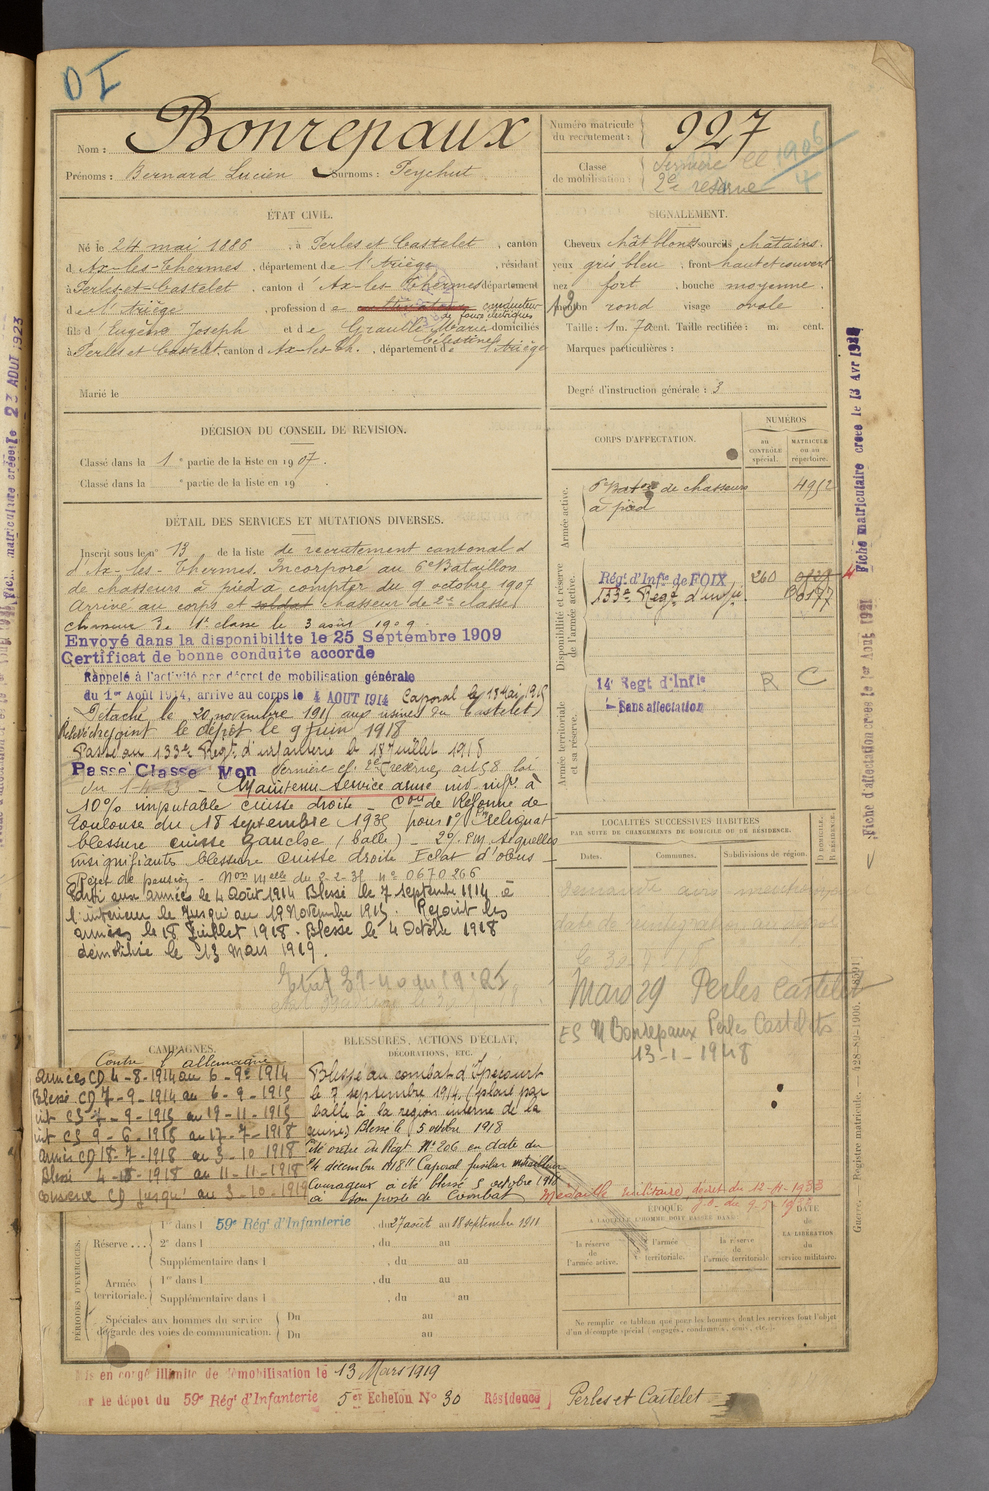 D I
Nom : Bonrepaux
Prénoms : Bernard Lucien Surnoms : Peychut
Numéro matricule du recrutement : 927
Classe de mobilisation : dernière cl 1906
2e réserve 4
ÉTAT CIVIL.
Né le 24 mai 1886, à Perles et Castelet, canton
d'Ax-les-Thermes, département de l'Ariège, résidant
à Perles-et-Castelet, canton d'Ax les Thermes département
de l'Ariège, profession de cultivateur conducteur
de fours électriques
fils d'Eugène Joseph et de Graulle Marie Célestine domiciliés
à Perles et Castelet, canton d'Ax-les-Th., département de l'Ariège
Marié le
SIGNALEMENT.
Cheveux chât blonds sourcils châtains.
yeux gris bleu, front haut et couvert
nez fort, bouche moyenne.
menton rond visage ovale
Taille : 1 m. 70 cent. Taille rectifiée : m. cent.
Marques particulières :
Degré d'instruction générale : 3
DÉCISION DU CONSEIL DE REVISION.
Classé dans la 1e partie de la liste en 1907.
Classé dans la e partie de la liste en 19
CORPS D'AFFECTATION.
NUMÉROS
au CONTRÔLE spécial.
MATRICULE ou au répertoire.
Armée active.
6e Baton de chasseurs 4952
à pied
Disponibilité et réserve de l'armée active.
Régt d'Infie de FOIX 260 0729
133e Regt d'infie
Armée territoriale et sa réserve.
14e Regt d'Infie R C
Sans affectation
DÉTAIL DES SERVICES ET MUTATIONS DIVERSES.
Inscrit sous le n° 13 de la liste de recrutement cantonal d
d'Ax-les-Thermes. Incorporé au 6e Bataillon
de chasseurs à pied à compter du 9 octobre 1907
Arrivé au corps et soldat chasseur de 2e classe
chasseur de 1e classe le 3 août 1909.
Envoyé dans la disponibilite le 25 Septembre 1909
Certificat de bonne conduite accorde
Rappelé à l'activité par décret de mobilisation générale
du 1er Août 1914, arrivé au corps le 4 AOUT 1914 Caporal le 18 Mai 1915
Détaché le 20 novembre 1915 aux usines du Castelet
rejoint le dépôt le 9 Juin 1918
Passé au 133e Regt d'infanterie le 18 Juillet 1918
Passé Classe Mon dernière cl. 2e réserve art 58 loi
du 1-4-23 - Maintenu service armé inv. inf. à
10% imputable cuisse droite - Con de Réforme de
Toulouse du 18 septembre 1935 pour 1°) reliquat
blessure cuisse gauche (balle) - 2°) séquelles
insignifiantes blessure cuisse droite Eclat d'obus -
Rejet de pension - Non Melle du 2-2-35 n° 0670266
Parti aux armées le 4 Août 1914 Blessé le 7 septembre 1914 à
l'intérieur le jusqu'au 19 Novembre 1915. Rejoint les
armées le 18 Juillet 1918. Blessé le 4 Octobre 1918
démobilisé le 13 mars 1919.
LOCALITÉS SUCCESSIVES HABITÉES
PAR SUITE DE CHANGEMENTS DE DOMICILE OU DE RÉSIDENCE.
Dates.
Communes.
Subdivisions de région.
D DOMICILE.
R RÉSIDENCE.
Mars 29 Perles Castelet
ES M Bonrepaux Perles Castelets
13-1-1948
CAMPAGNES.
Contre l'allemagne
armées CD 4-8-1914 au 6-9-1914
Blessé CD 7-9-1914 au 6-9-1915
int CS 7-9-1915 au 19-11-1915
int CS 9-6-1918 au 17-7-1918
armées CD 18-7-1918 au 3-10-1918
Blessé 4-10-1918 au 11-11-1918
CD jusqu'au 3-10-1919
BLESSURES, ACTIONS D'ÉCLAT,
DÉCORATIONS, ETC.
Blessé au combat d'Ipécourt
le 7 septembre 1914 (plaie par
balle à la région interne de la
jambe) Blessé le 5 octobre 1918
Cité ordre du Régt N° 206 en date du
24 décembre 1918 "Caporal fusilier mitrailleur
Courageux a été blessé 5 octobre 1918
à son poste de Combat
Médaille militaire, décret du 12-4-1933
PÉRIODES D'EXERCICES.
Réserve...
1re dans l 59e Régt d'Infanterie, du 27 août au 18 septembre 1911
2e dans l , du au
Supplémentaire dans l , du au
Armée territoriale.
1re dans l , du au
Supplémentaire dans l , du au
Spéciales aux hommes du service
de garde des voies de communication.
Du au
Du au
ÉPOQUE
À LAQUELLE L'HOMME DOIT PASSER DANS
la réserve de l'armée active.
l'armée territoriale.
la réserve de l'armée territoriale
DATE DE LA LIBÉRATION du service militaire.
Ne remplir ce tableau que pour les hommes dont les services font l'objet
d'un décompte spécial (engagés, condamnés, omis, etc.).
Mis en congé illimité de démobilisation le 13 Mars 1919
r le dépôt du 59e Régt d'Infanterie 5e Echelon N° 30 Résidence Perles et Castelet
Fiche matriculaire créée le 13 Avr
Fiche d'affectation créée le 1er Aout 1921
Guerre. — Registre matricule. — 428-89-1906.
matriculaire créée le 23 AOUT 1923